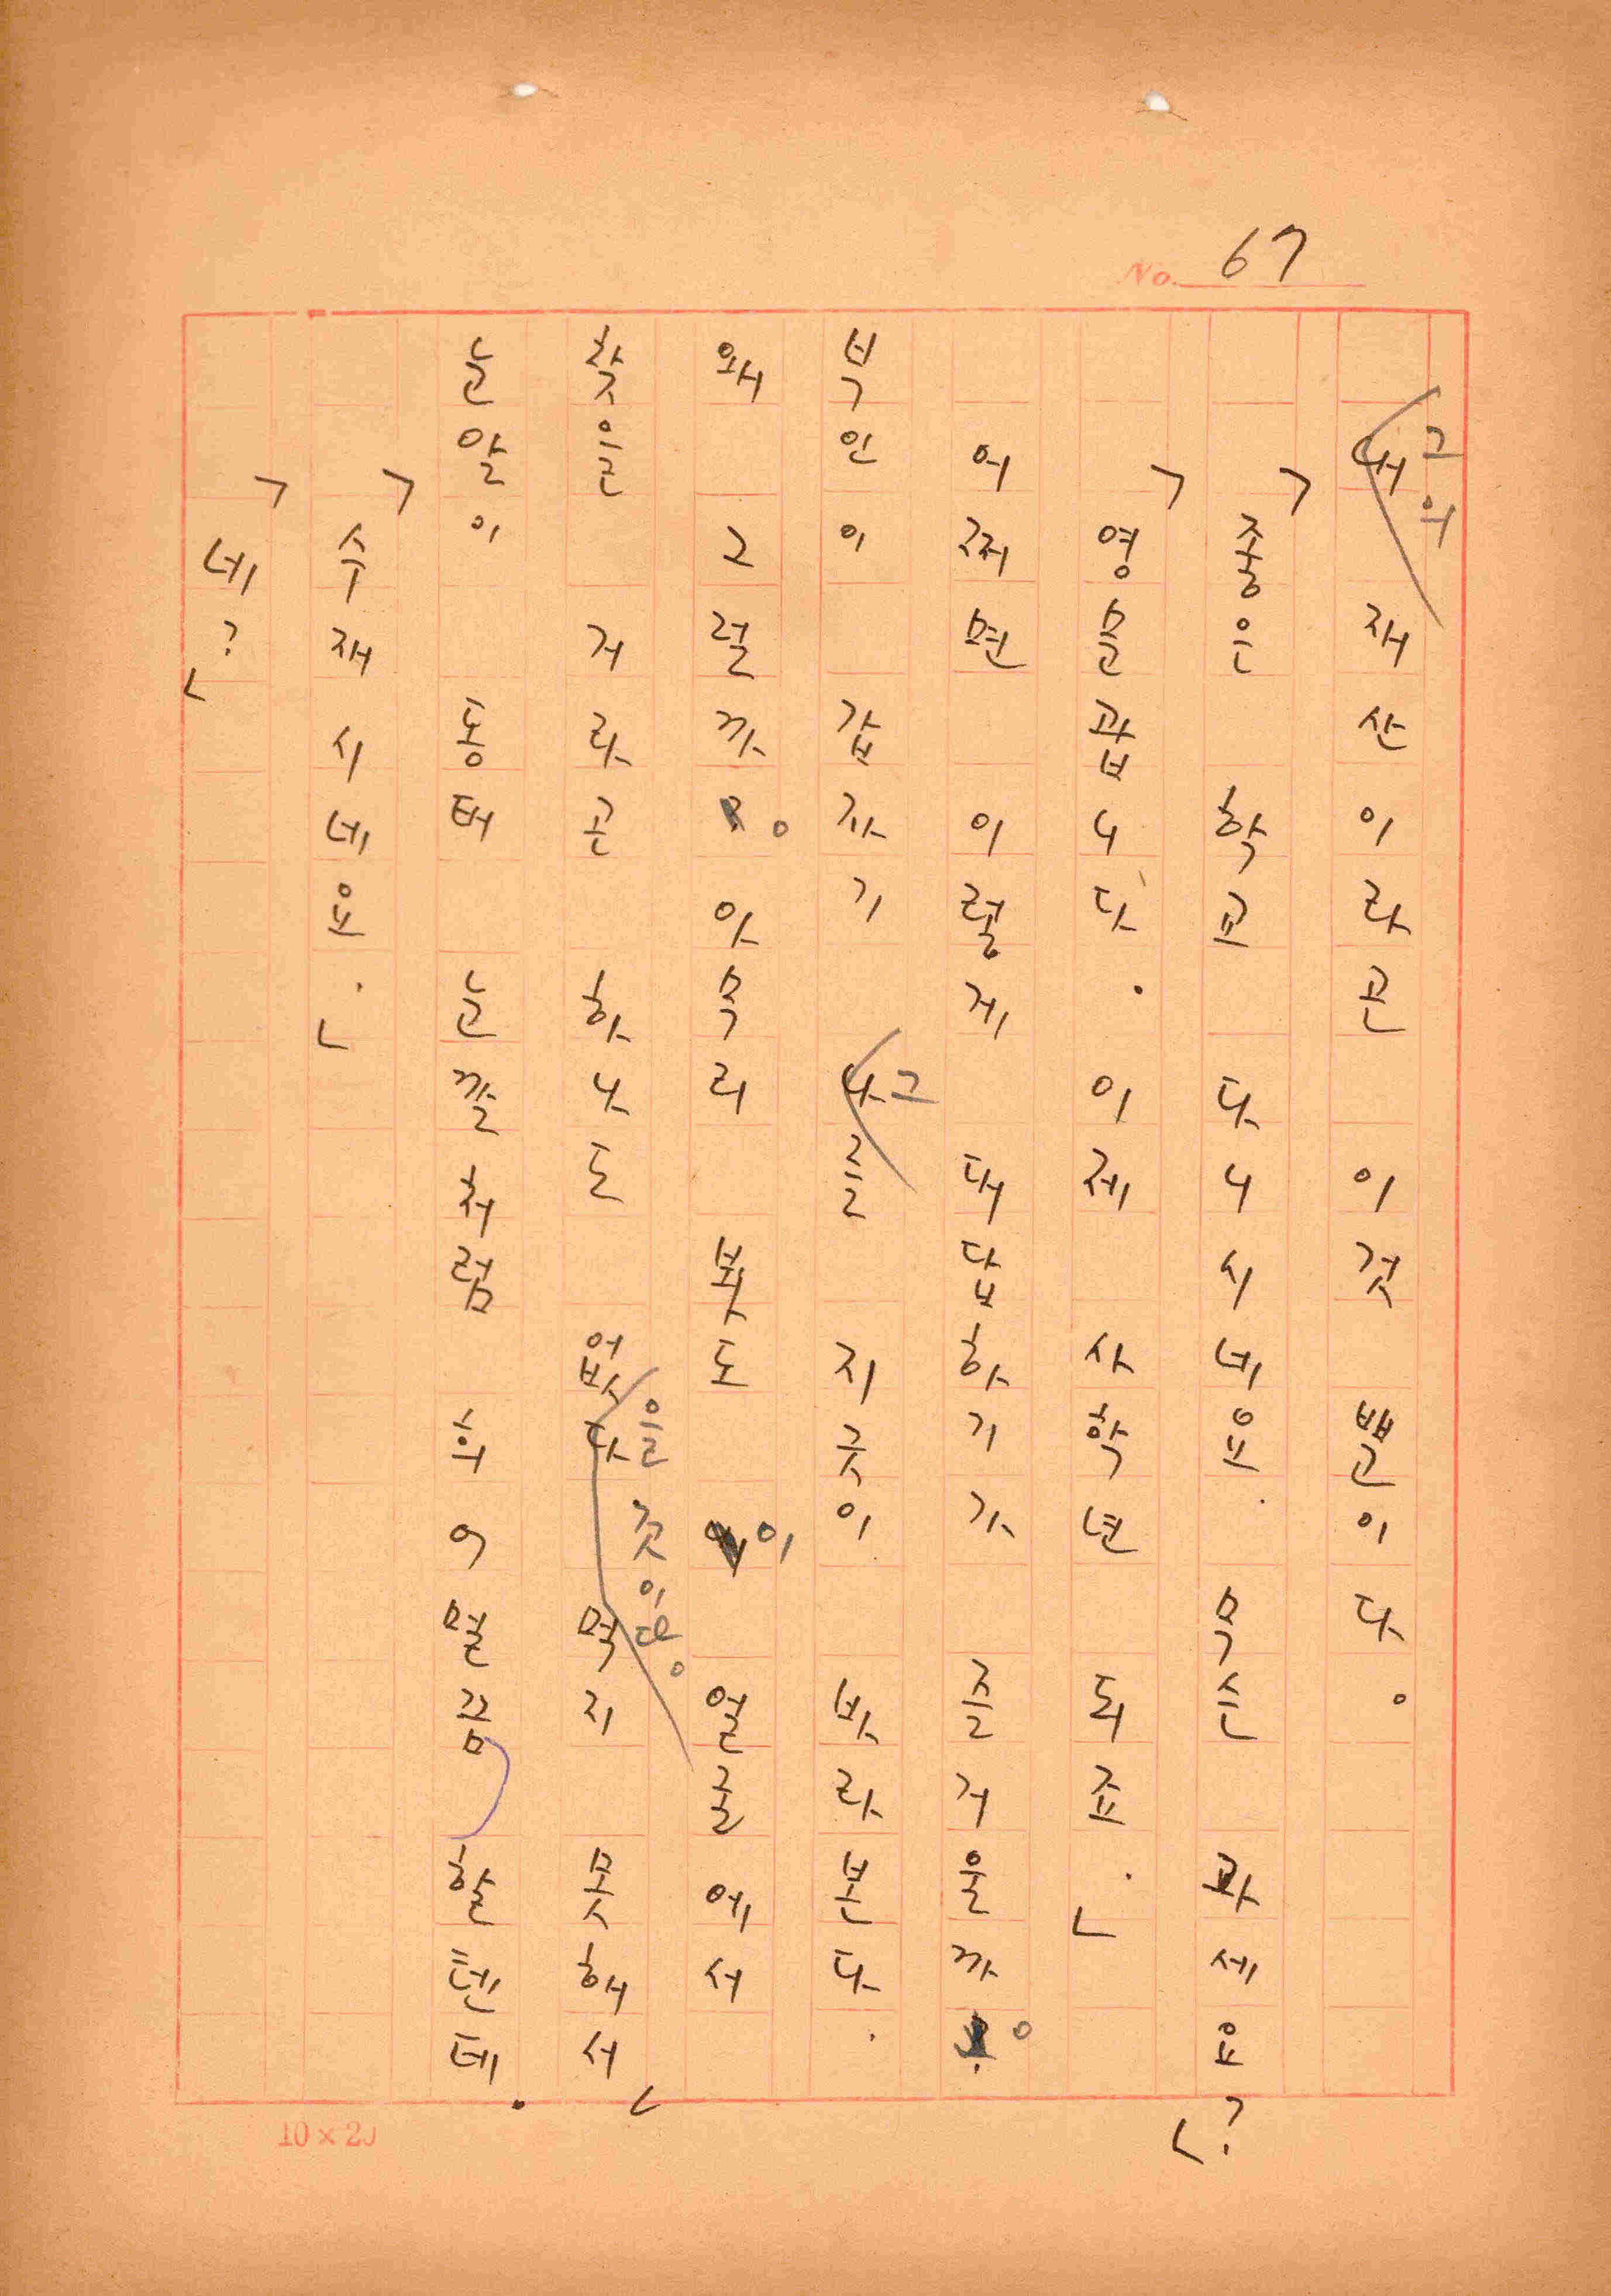 No. 67
내 그의 재산이라곤 이것뿐이다。
「좋은 학교 다니시네요. 묵슨 과세요?」
「영문괍니다. 이제 사학년 되죠.」
어쩌면 이렇게 대답하기가 즐거울까。
벅인이 갑자기 나 그를 지긋이 바라본다.
왜 그럴까。 아무리 봐도 이 얼굴에서
찾을 거라곤 하나도 없다을 것이다。 멱지 못해서
눈알이 동태 눈깔처럼 휘여멀끔할 텐데.
「수재시네요.」
「네?」
10×20